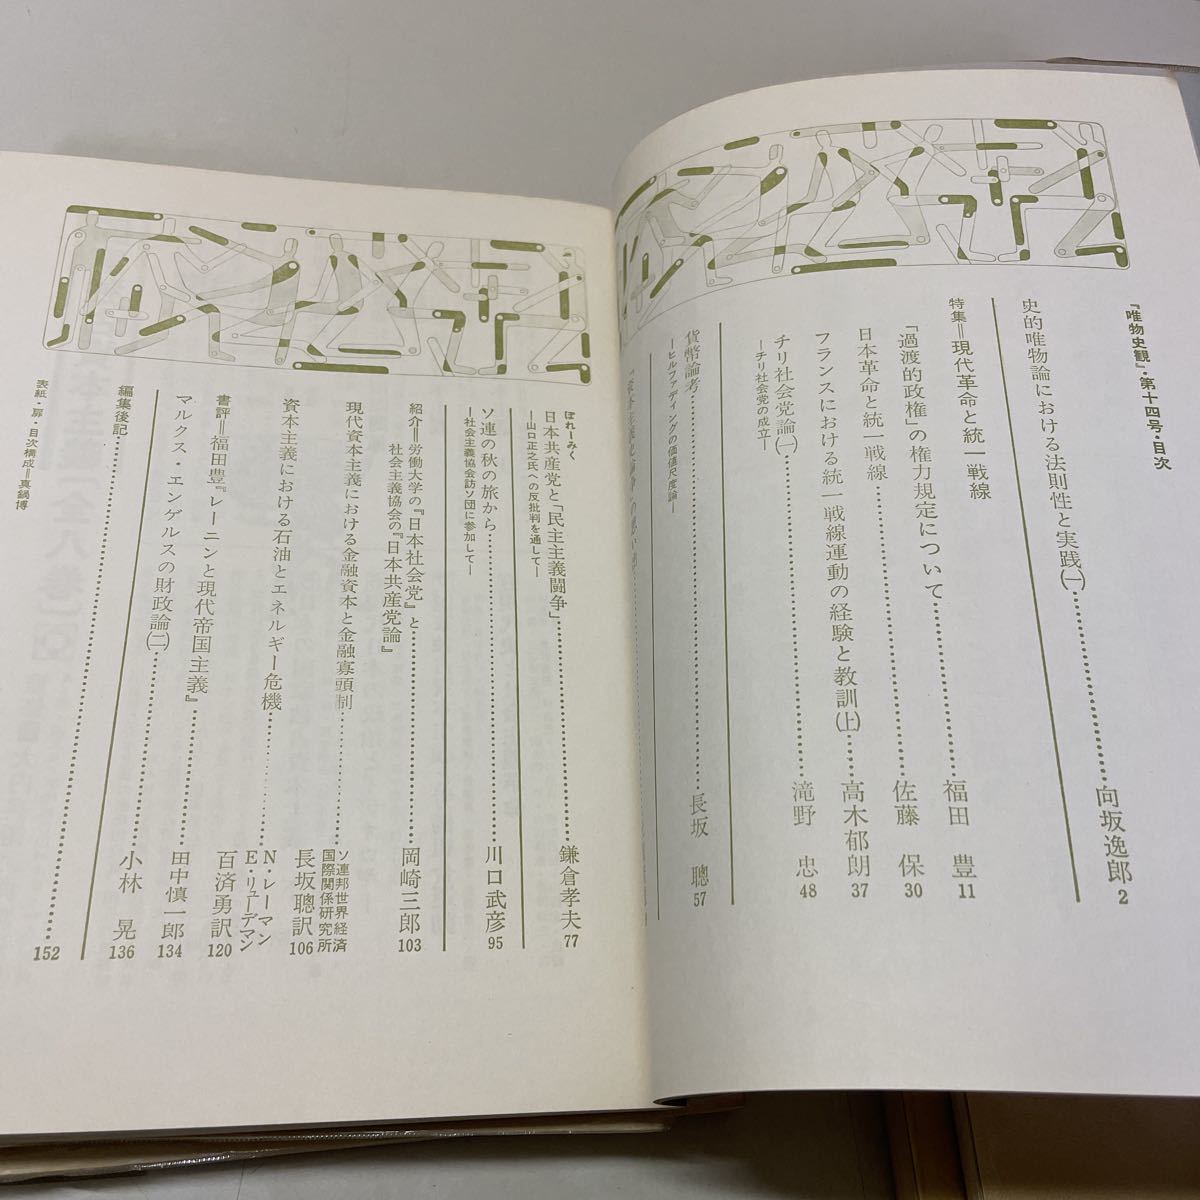 『唯物史観』・第十四号・目次
史的唯物論における法則性と実践㈠……向坂逸郎 2
特集＝現代革命と統一戦線
「過渡的政権」の権力規定について……福田 豊 11
日本革命と統一戦線……佐藤 保 30
フランスにおける統一戦線運動の経験と教訓㈤……高木郁朗 37
チリ社会党論㈠……滝野 忠 48
―チリ社会党の成立―
貨幣論考……長坂 聰 57
―ヒルファディングの価値尺度論―
ぽれーみく
日本共産党と「民主主義闘争」……鎌倉孝夫 77
―山口正之氏への反批判を通して―
ソ連の秋の旅から……川口武彦 95
―社会主義協会訪ソ団に参加して―
紹介＝労働大学の『日本社会党』と
社会主義協会の『日本共産党論』……岡崎三郎 103
現代資本主義における金融資本と金融寡頭制……ソ連邦世界経済国際関係研究所 長坂聰訳 106
資本主義における石油とエネルギー危機……N・レーマン E・リューデマン 百済勇訳 120
書評＝福田豊『レーニンと現代帝国主義』……田中慎一郎 134
マルクス・エンゲルスの財政論㈡……小林 晃 136
編集後記……152
表紙・扉・目次構成＝真鍋博